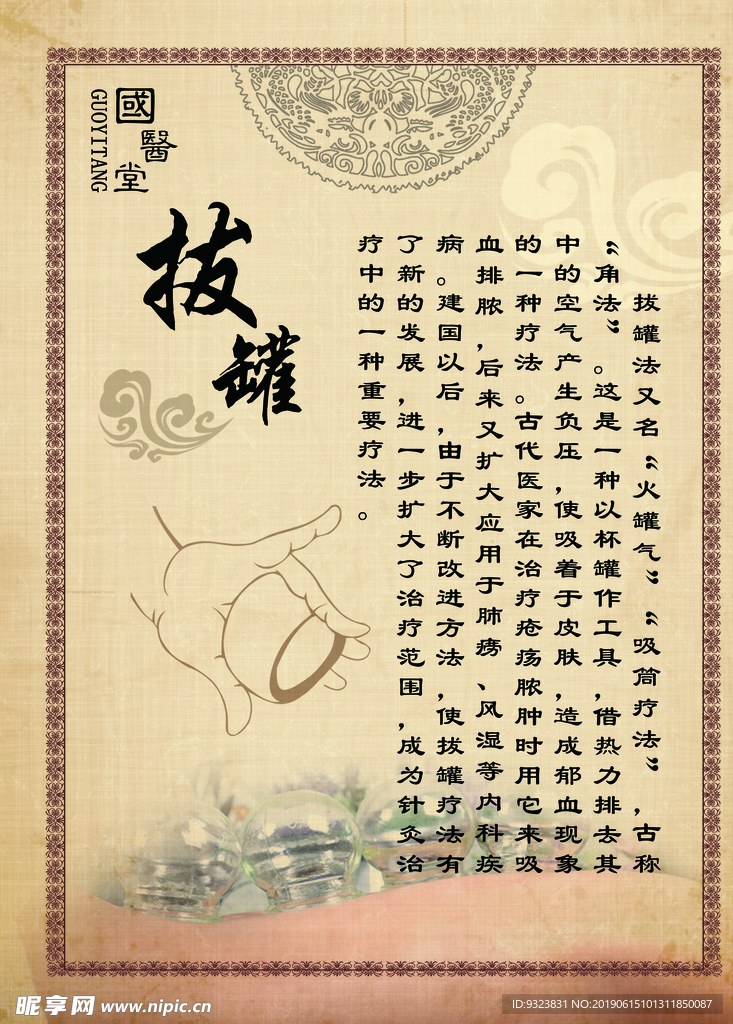 國醫堂
GUOYITANG
拔罐
拔罐法又名“火罐气”“吸筒疗法”,古称
“角法”。这是一种以杯罐作工具,借热力排去其
中的空气产生负压,使吸着于皮肤,造成郁血现象
的一种疗法。古代医家在治疗疮疡脓肿时用它来吸
血排脓,后来又扩大应用于肺痨、风湿等内科疾
病。建国以后,由于不断改进方法,使拔罐疗法有
了新的发展,进一步扩大了治疗范围,成为针灸治
疗中的一种重要疗法。
昵享网 www.nipic.cn
ID:9323831 NO:20190615101311850087